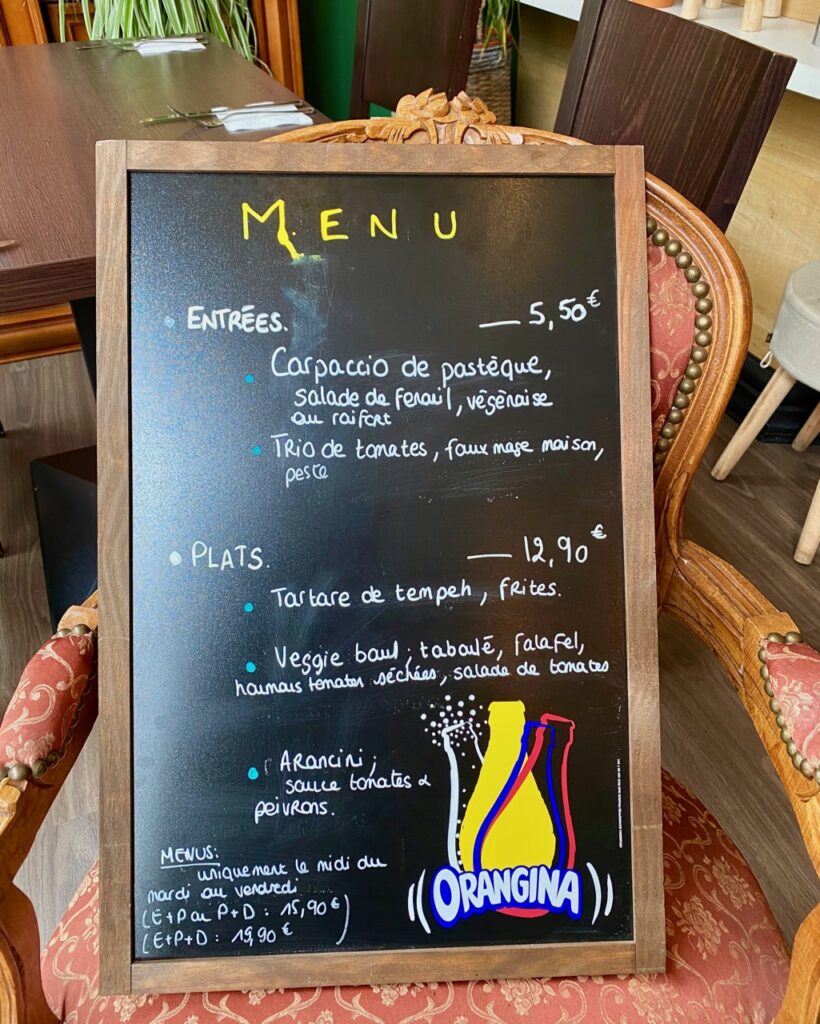 MENU
ENTRÉES. — 5,50€
Carpaccio de pastèque,
salade de fenouil, végénaise
au raifort
TRIO de tomates, faux mage maison,
pesto
PLATS. — 12,90€
Tartare de tempeh, frites.
Veggie bowl; taboulé, falafel,
houmous tomates séchées, salade de tomates
ARANCINI;
sauce tomates &
poivrons.
MENUS:
uniquement le midi du
mardi au vendredi
(E+P ou P+D : 15,90€)
(E+P+D : 19,90 €
ORANGINA